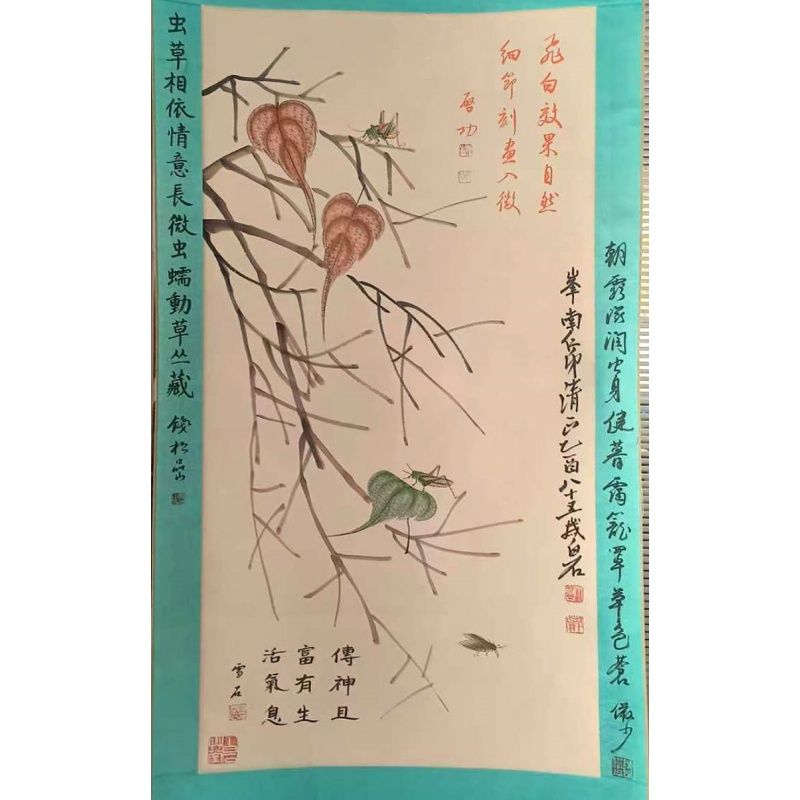 朝露滋润虫身健暮靄籠罩草色蒼
飛白效果自然
细節刻畫入微
啓功
峯南仁兄清正乙酉八十五歲白石
傳神且
富有生
活氣息
雪石
虫草相依情意長微虫蠕動草丛藏
錢松喦